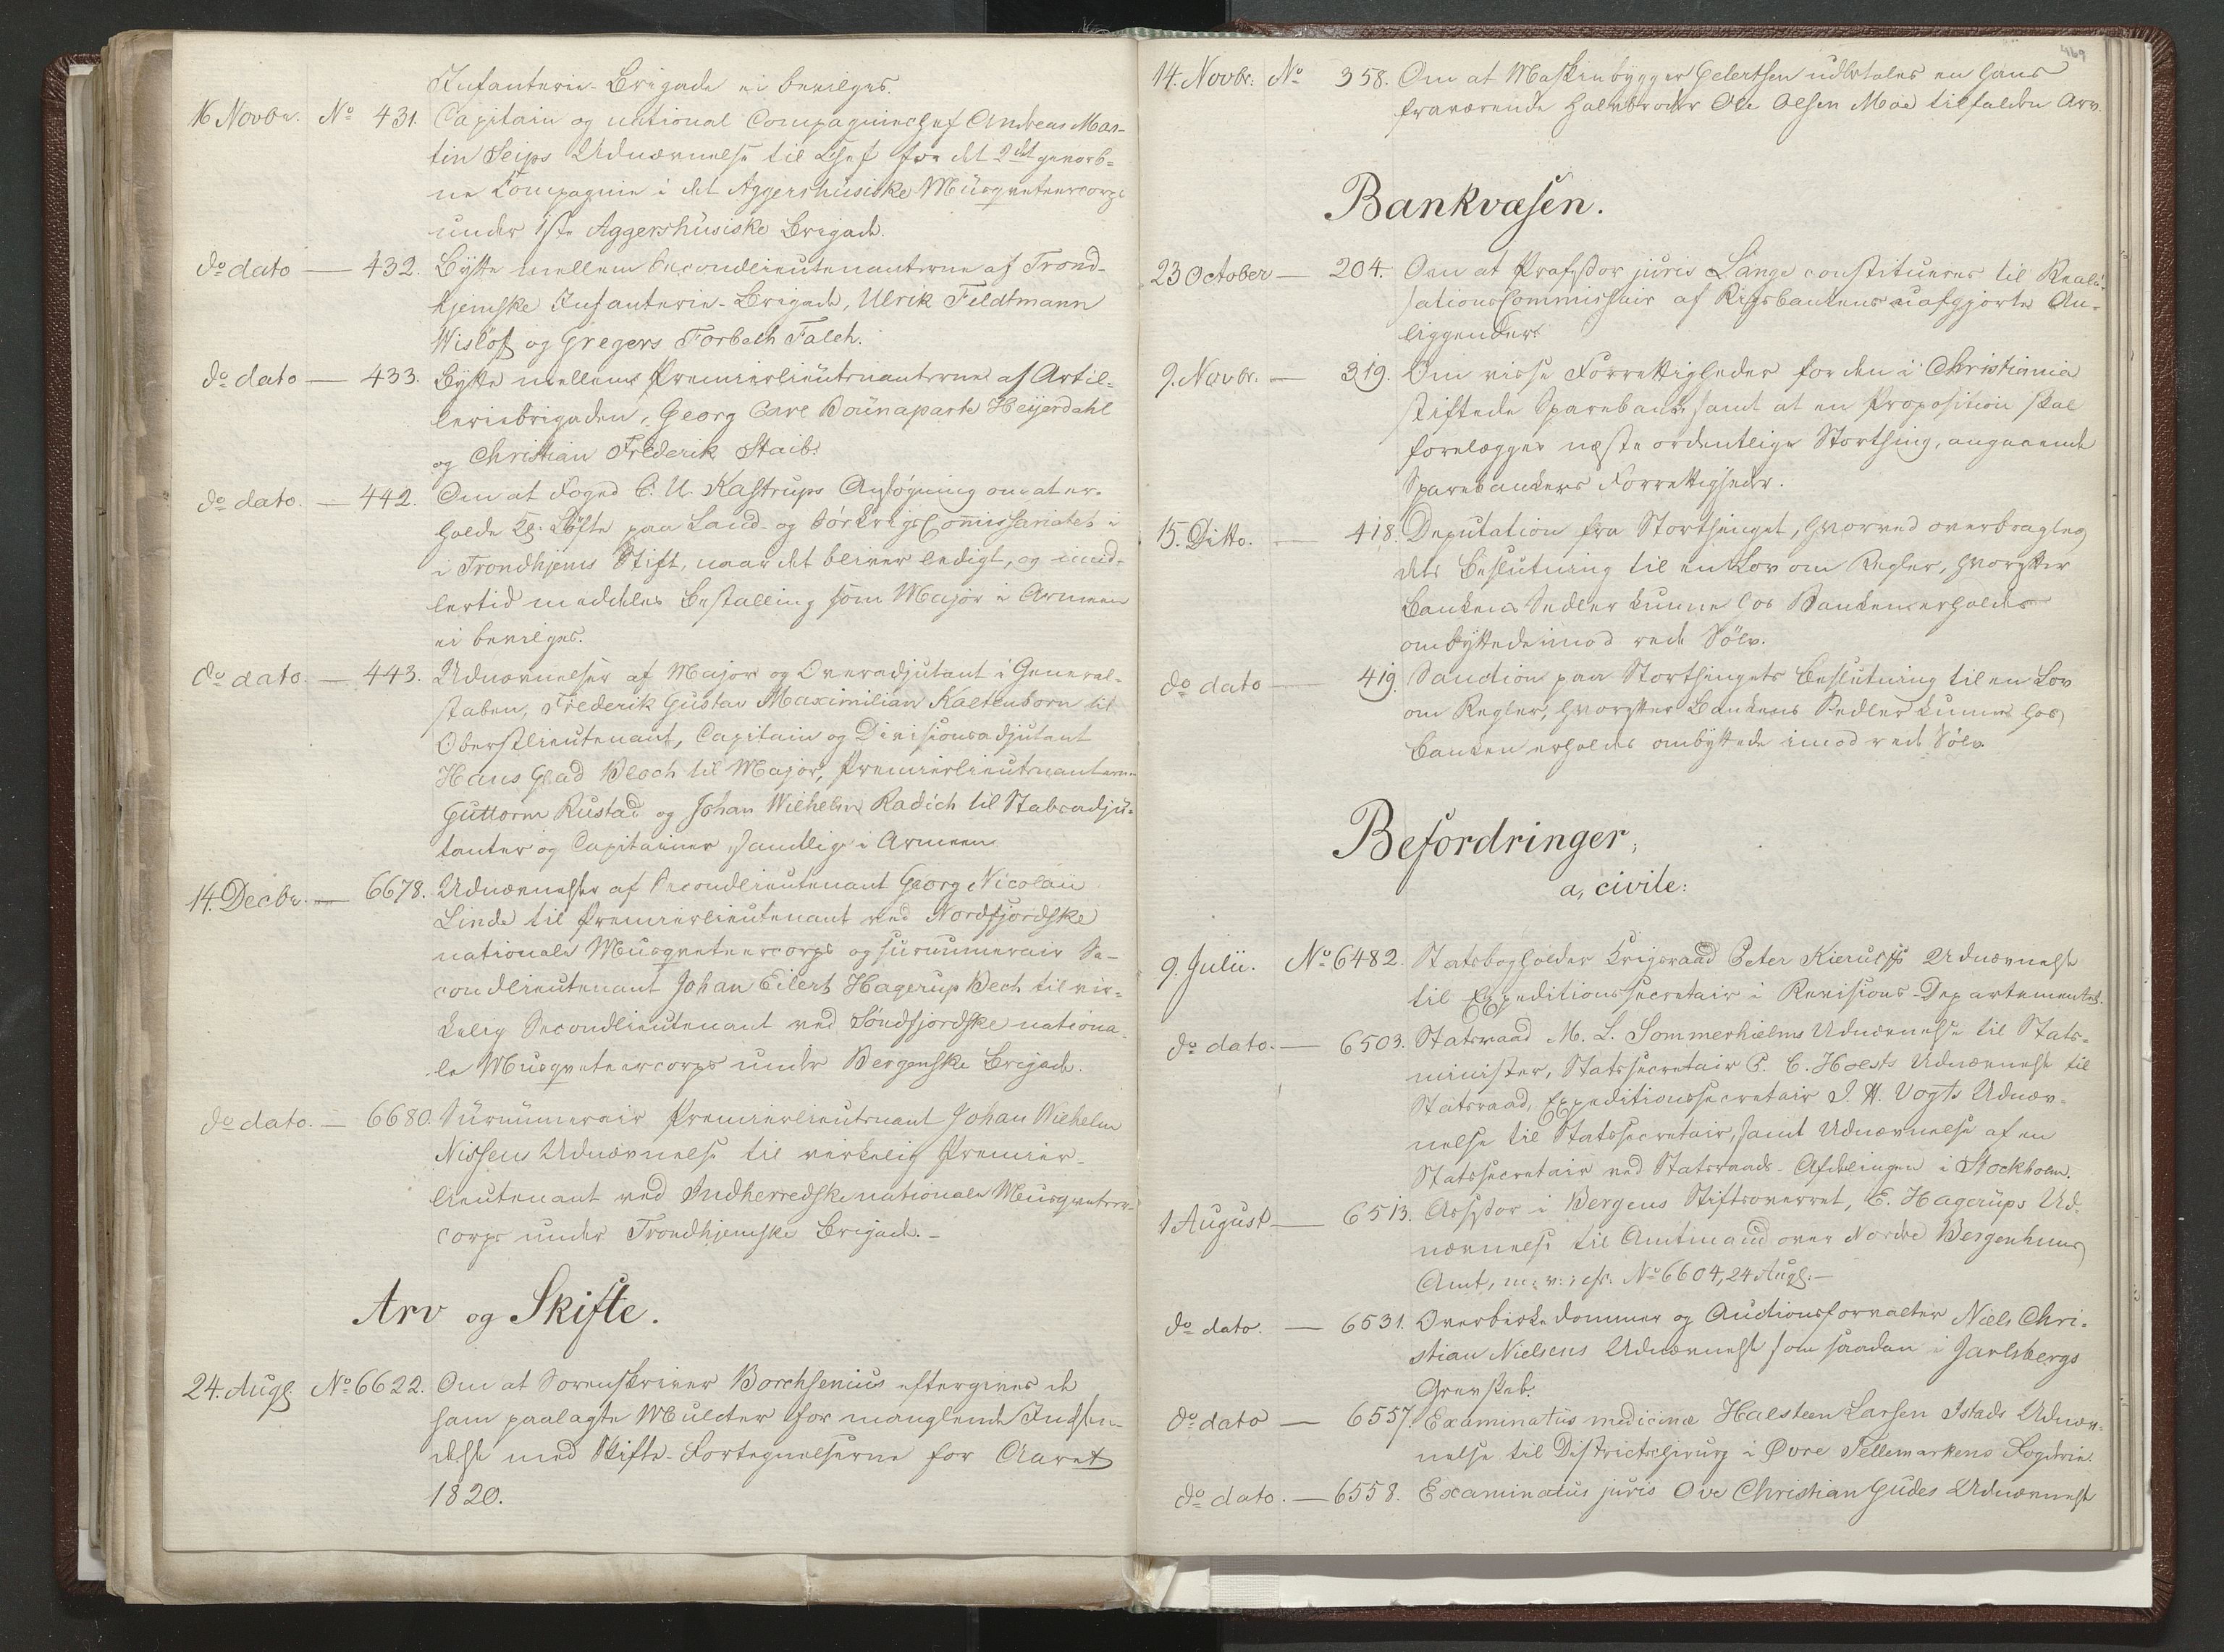 Infanterie-Brigade ei bevilges.
16 Novbr. No 431. Capitain og national Compagniechef Andreas Mar-
tin Seips Udnævnelse til Chef for det 2det gevorb-
ne Compagnie i det Aggershusiske Musqueteercorps
under 1ste Aggershusiske Brigade.
do dato — 432. Bytte mellem Secondlieutenanterne af Trond-
hjemske Infanterie-Brigade, Ulrik Feldtmann
Wisløf og Gregers Forbech Falch.
do dato — 433. Bytte mellem Premierlieutenanterne af Artil-
leriebrigaden, Georg Carl Bounaparte Heyerdahl
og Christian Frederik Staib.
do dato. — 442. Om at Foged C. U. Kastrups Ansøgning om at er-
holde Løfte paa Land- og SøkrigsCommissariatet i
i Trondhjems Stift, naar det bliver ledigt, og imid-
lertid meddeles Bestalling som Major i Armeen
ei bevilges.
do dato. — 443. Udnævnelser af Major og Overadjutant i General-
staben, Frederik Gustav Maximilian Kaltenborn til
Oberstlieutenant, Capitain og Divisionsadjutant
Hans Glad Bloch til Major, Premierlieutenanterne
Guttorm Rustad og Johan Wilhelm Radich til Stabsadju-
tanter og Capitainer, samtlige i Armeen.
14. Decbr. — 6678. Udnævnelse af Secondlieutenant Georg Nicolaii
Linde til Premierlieutenant ved Nordfjordske
nationale Musqueteercorps og surnumerair Se-
condlieutenant Johan Eilert Hagerup Bech til vir-
kelig Secondlieutenant ved Søndfjordske nationa-
le Musqueteercorps under Bergenske Brigade.
do dato. — 6680. Surnumerair Premierlieutenant Johan Wilhelm
Nissens Udnævnelse til virkelig Premier-
lieutenant ved Indherredske nationale Musqueteer-
corps under Trondhjemske Brigade. -
Arv og Skifte.
24. Augs No 6622. Om at Sorenskriver Borchsenius eftergives de
ham paalagte Mulcter for manglende Indsen-
delse med Skifte-Fortegnelserne for Aaret
1820.
469
14. Novbr. No 358. Om at Maskinbygger Gelertsen udbetales en hans
fraværende Halvbroder Ole Olsen Moe tilfalden Arv.
Bankvæsen.
23 October — 204. Om at Professor juris Lange constitueres til Reali-
sationsCommissair af Rigsbankens uafgjorte An-
liggender.
9. Novbr. — 319. Om visse Forrettigheder for den i Christiania
stiftede Sparebank, samt at en Proposition skal
forelægges næste ordentlige Storthing, angaaende
Sparebankers Forrettigheder.
15. Ditto. — 418. Deputation fra Storthinget, hvorved overbragtes
dets Beslutning til en Lov om Regler, hvorefter
Bankens Sedler kunne hos Banken erholdes
ombyttede imod rede Sølv.
do dato — 419. Sanction paa Storthingets Beslutning til en Lov
om Regler, hvorefter Bankens Sedler kunne hos
Banken erholdes ombyttede imod rede Sølv.
Befordringer,
a, civile:
9. Julii. No 6482. Statsbogholder Krigsraad Peter Kierulfs Udnævnelse
til Expeditionssecretair i Revisions-Departementet.
do dato. — 6503. Statsraad M. L. Sommerhielms Udnævnelse til Stats-
minister, Statssecretair P. C. Holsts Udnævnelse til
Statsraad, Expeditionssecretair J. H. Vogts Udnæv-
nelse til Statssecretair, samt Udnævnelse af en
Statssecretair ved Statsraads-Afdelingen i Stockholm.
1 August — 6513. Assessor i Bergens Stiftsoverret, E. Hagerups Ud-
nævnelse til Amtmand over Nordre Bergenhuus
Amt, m: v:, cfr. No 6604, 24 Augs. —
do dato. — 6531. Overbirkedommer og Auctionsforvalter Niels Chri-
stian Nielsens Udnævnelse som saadan i Jarlsbergs
Grevskab.
do dato — 6557. Examinatus medicinæ Halsteen Larsen Istads Udnæv-
nelse til Districtschirurg i Øvre Tellemarkens Fogderie.
do dato. — 6558. Examinatus juris Ove Christian Gudes Udnævnelse